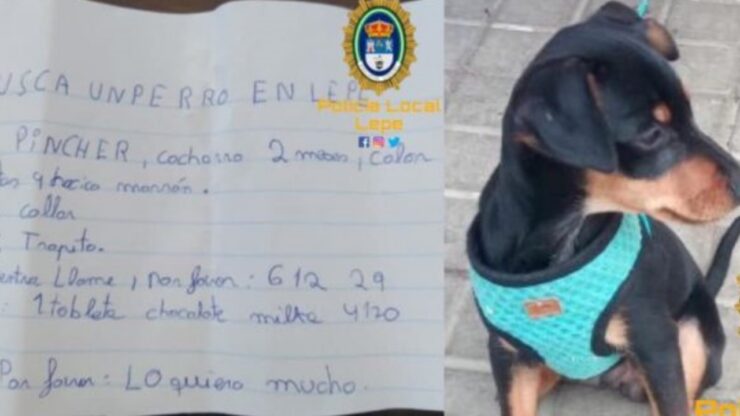 USCA UN PERRO EN LEPE
PINCHER, cachorro 2 meses, color
hocico marrón.
collar
Trapito.
Llame, por favor: 612 29
1 tableta chocolate milka 4120
Por favor: LO quiero mucho.
Policía Local
Lepe